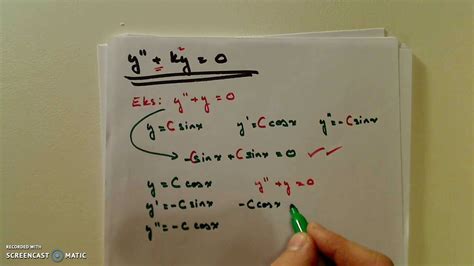 y" + k²y = 0
Eks: y" + y = 0
y = C sinx y' = C cosx y" = -C sinx
-C sinx + C sinx = 0 ✓✓
y = C cosx y" + y = 0
y' = -C sinx -C cosx
y" = -C cosx
RECORDED WITH
SCREENCAST MATIC